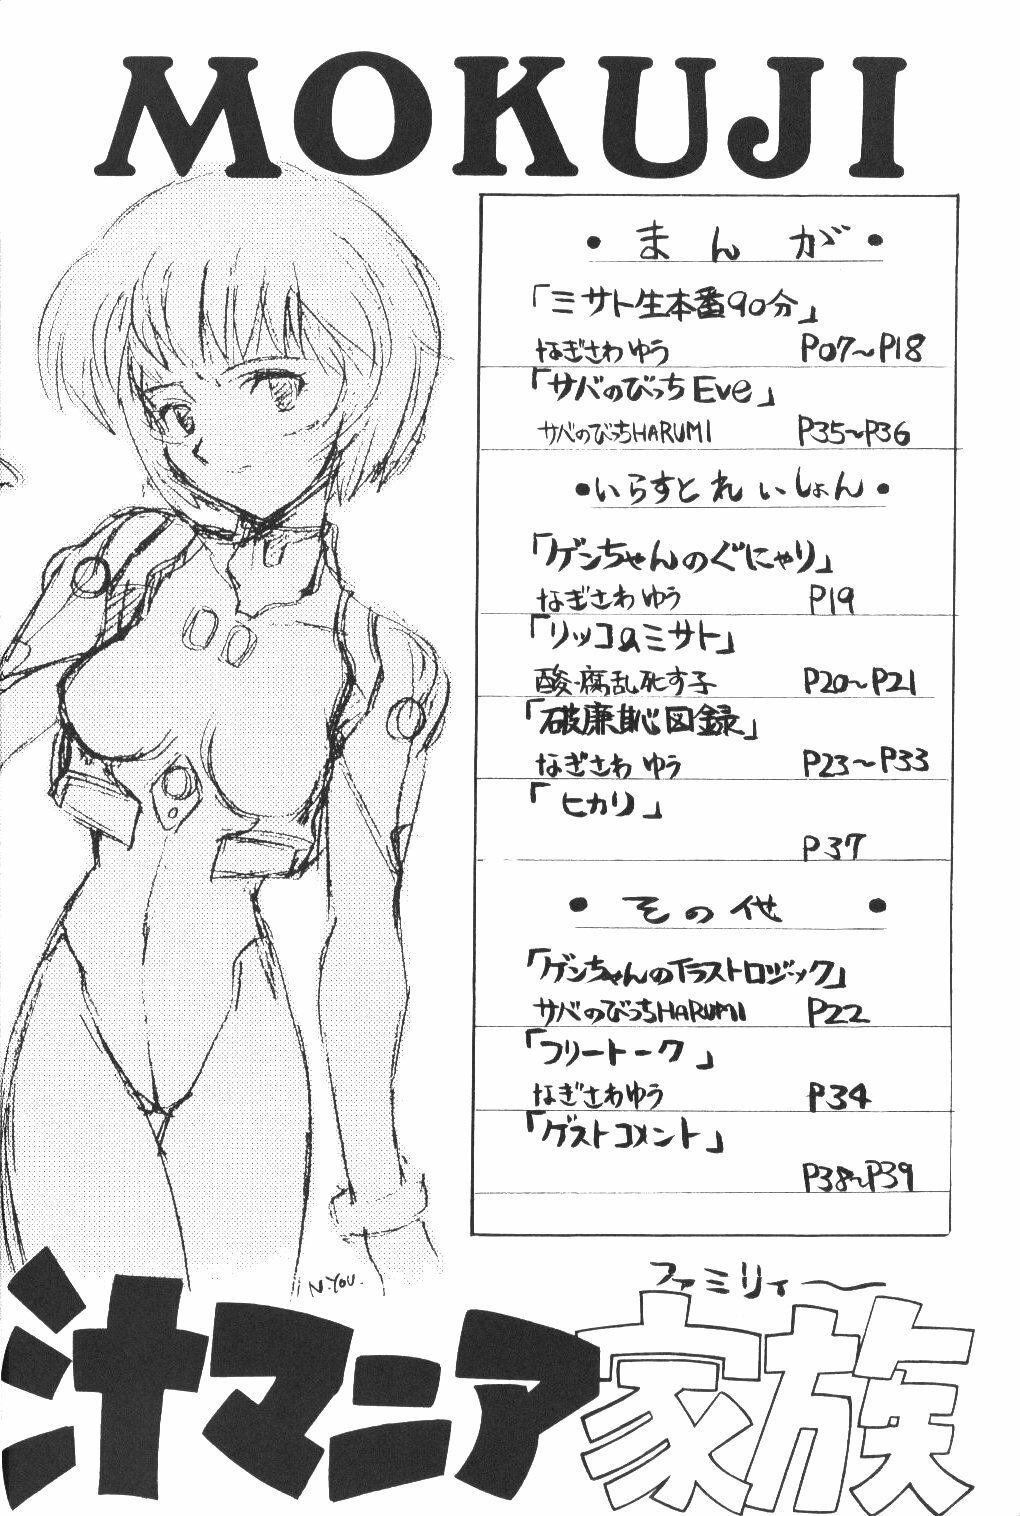 MOKUJI
・まんが・
「ミサト生本番90分」
なぎさわゆう P07～P18
「サバのびっちEve」
サバのびっちHARUMI P35～P36
・いらすとれいしょん・
「ゲンちゃんのぐにゃり」
なぎさわゆう P19
「リッコのミサト」
酸・腐乱死す子 P20～P21
「破廉恥図録」
なぎさわゆう P23～P33
「ヒカリ」
P37
・その他・
「ゲンちゃんのイラストロジック」
サバのびっちHARUMI P22
「フリートーク」
なぎさわゆう P34
「ゲストコメント」
P38～P39
N.YOU.
ファミリィー
汁マニア家族